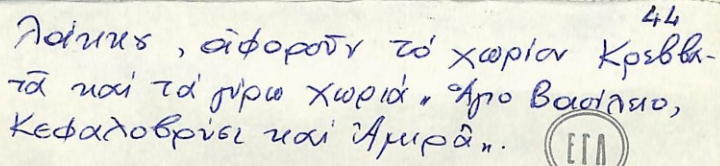 44
λάκκου, ἀφοροῦν τό χωρίον Κρεββα-
τᾶ καί τά γύρω χωριά „ Ἅγιο Βασίλειο,
Κεφαλοβρύσι καί Ἀμιρᾶ„.
ΕΓΛ